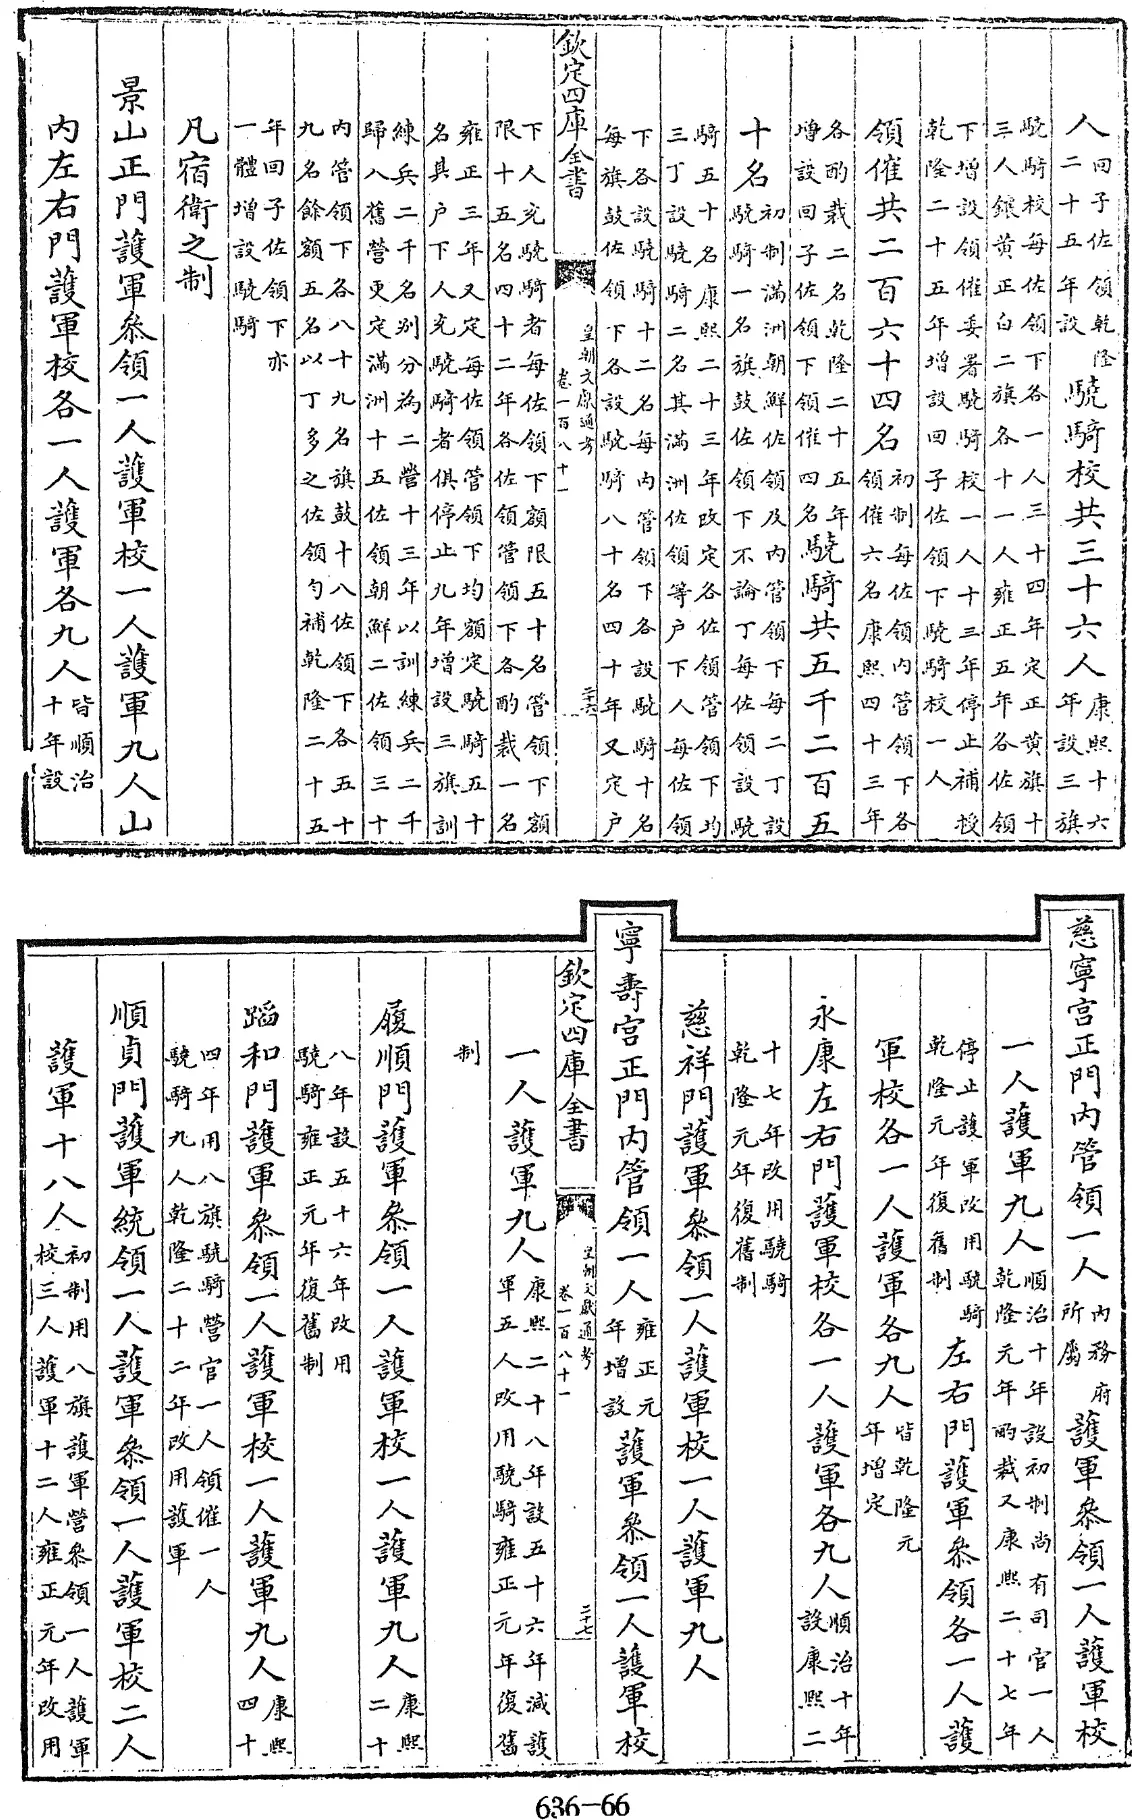 人回子佐領乾隆二十五年設驍騎校共三十六人康熙十六年設三旗
驍騎校每佐領下各一人三十四年定正黃旗十三人鑲黃正白二旗各十一人雍正五年各佐領
下增設領催委署驍騎校一人十三年停止補授乾隆二十五年增設回子佐領下驍騎校一人
領催共二百六十四名初制每佐領內管領下各領催六名康熙四十三年
各酌裁二名乾隆二十五年增設回子佐領下領催四名驍騎共五千二百五
十名初制滿洲朝鮮佐領及內管領下每二丁設驍騎一名旗鼓佐領下不論丁每佐領設驍
騎五十名康熙二十三年改定各佐領管領下均三丁設驍騎二名其滿洲佐領等戶下人每佐領
下各設驍騎十二名每內管領下各設驍騎十名每旗鼓佐領下各設驍騎八十名四十年又定戶
欽定四庫全書
皇朝文獻通考
卷一百八十一
二十六
下人充驍騎者每佐領下額限五十名管領下額限十五名四十二年各佐領管領下各酌裁一名
雍正三年又定每佐領管領下均額定驍騎五十名其戶下人充驍騎者俱停止九年增設三旗訓
練兵二千名別分為二營十三年以訓練兵二千歸八舊營更定滿洲十五佐領朝鮮二佐領三十
內管領下各八十九名旗鼓十八佐領下各五十九名餘額五名以丁多之佐領勻補乾隆二十五
年回子佐領下亦一體增設驍騎
凡宿衛之制
景山正門護軍參領一人護軍校一人護軍九人山
內左右門護軍校各一人護軍各九人皆順治十年設
慈寧宮正門內管領一人內務府所屬護軍參領一人護軍校
一人護軍九人順治十年設初制尚有司官一人乾隆元年酌裁又康熙二十七年
停止護軍改用驍騎乾隆元年復舊制左右門護軍參領各一人護
軍校各一人護軍各九人皆乾隆元年增定
永康左右門護軍校各一人護軍各九人順治十年設康熙二
十七年改用驍騎乾隆元年復舊制
慈祥門護軍參領一人護軍校一人護軍九人
寧壽宮正門內管領一人雍正元年增設護軍參領一人護軍校
欽定四庫全書
皇朝文獻通考
卷一百八十一
二十七
一人護軍九人康熙二十八年設五十六年減護軍五人改用驍騎雍正元年復舊
制
履順門護軍參領一人護軍校一人護軍九人康熙二十
八年設五十六年改用驍騎雍正元年復舊制
蹈和門護軍參領一人護軍校一人護軍九人康熙四十
四年用八旗驍騎營官一人領催一人驍騎九人乾隆二十二年改用護軍
順貞門護軍統領一人護軍參領一人護軍校二人
護軍十八人初制用八旗護軍營參領一人護軍校三人護軍十二人雍正元年改用
636-66